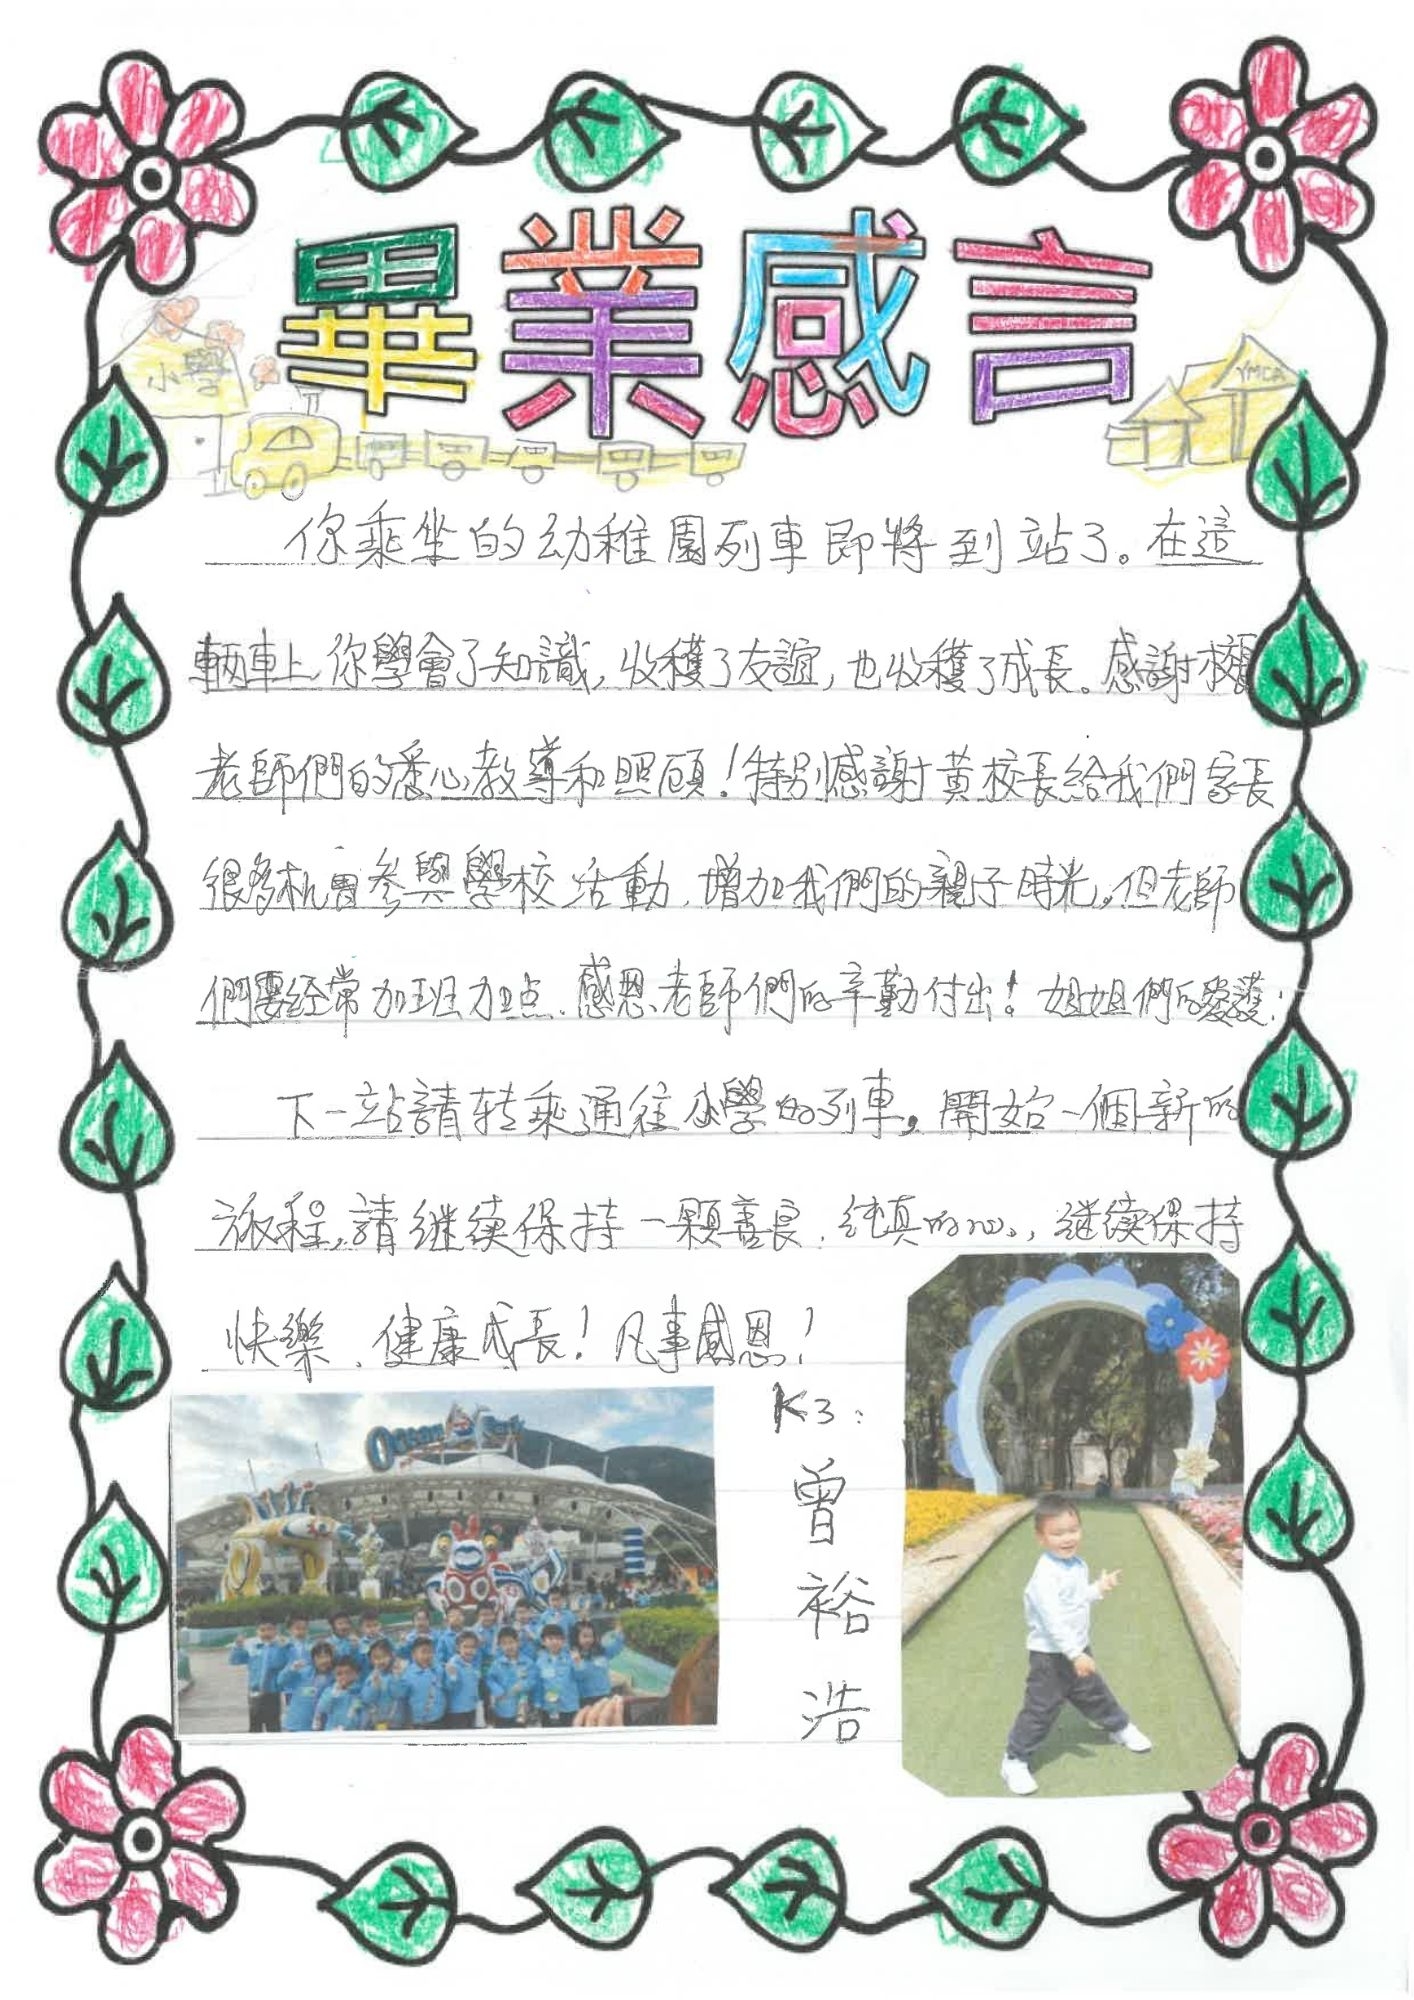 畢業感言
小學
YMCA
你乘坐的幼稚園列車即將到站了。在這
輛車上，你學會了知識，收穫了友誼，也收穫了成長。感謝校長
老師們的悉心教導和照顧！特別感謝黃校長給我們家長
很多机會参與學校活動，增加我們的親子時光。但老師
們要经常加班加点，感恩老師們的辛勤付出！姐姐們的愛護！
下一站請转乘通往小學的列車，開始一個新的
旅程，請继续保持一顆善良、纯真的心，继续保持
快樂、健康成長！凡事感恩！
Ocean Park
K3：
曾
裕
浩